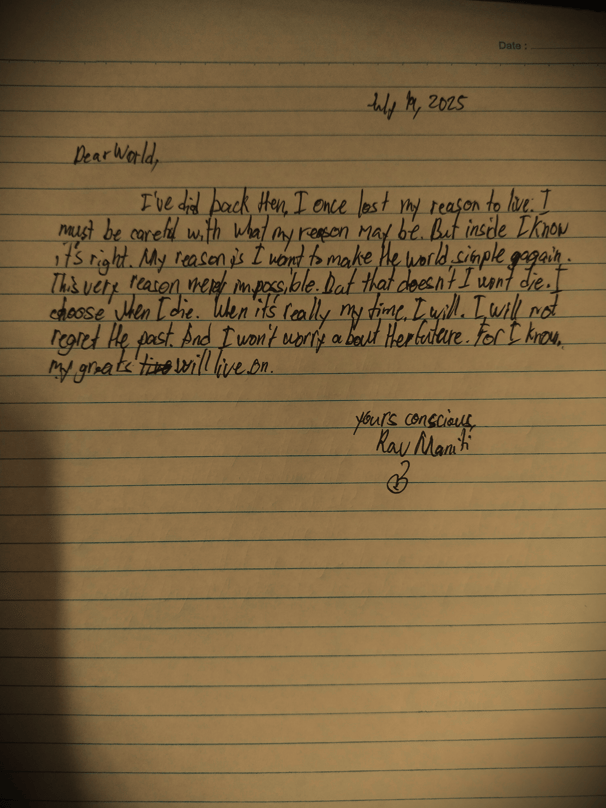 Date :
July 19, 2025
Dear World,
I've did back then, I once lost my reason to live. I
must be careful with what my reason may be. But inside I know
it's right. My reason is I want to make the world simple gagain.
This very reason merely impossible. But that doesn't I wont die. I
choose when I die. When it's really my time, I will. I will not
regret the past. And I won't worry about the future. For I know,
my greats will live on.
yours conscious,
Rav Maniti